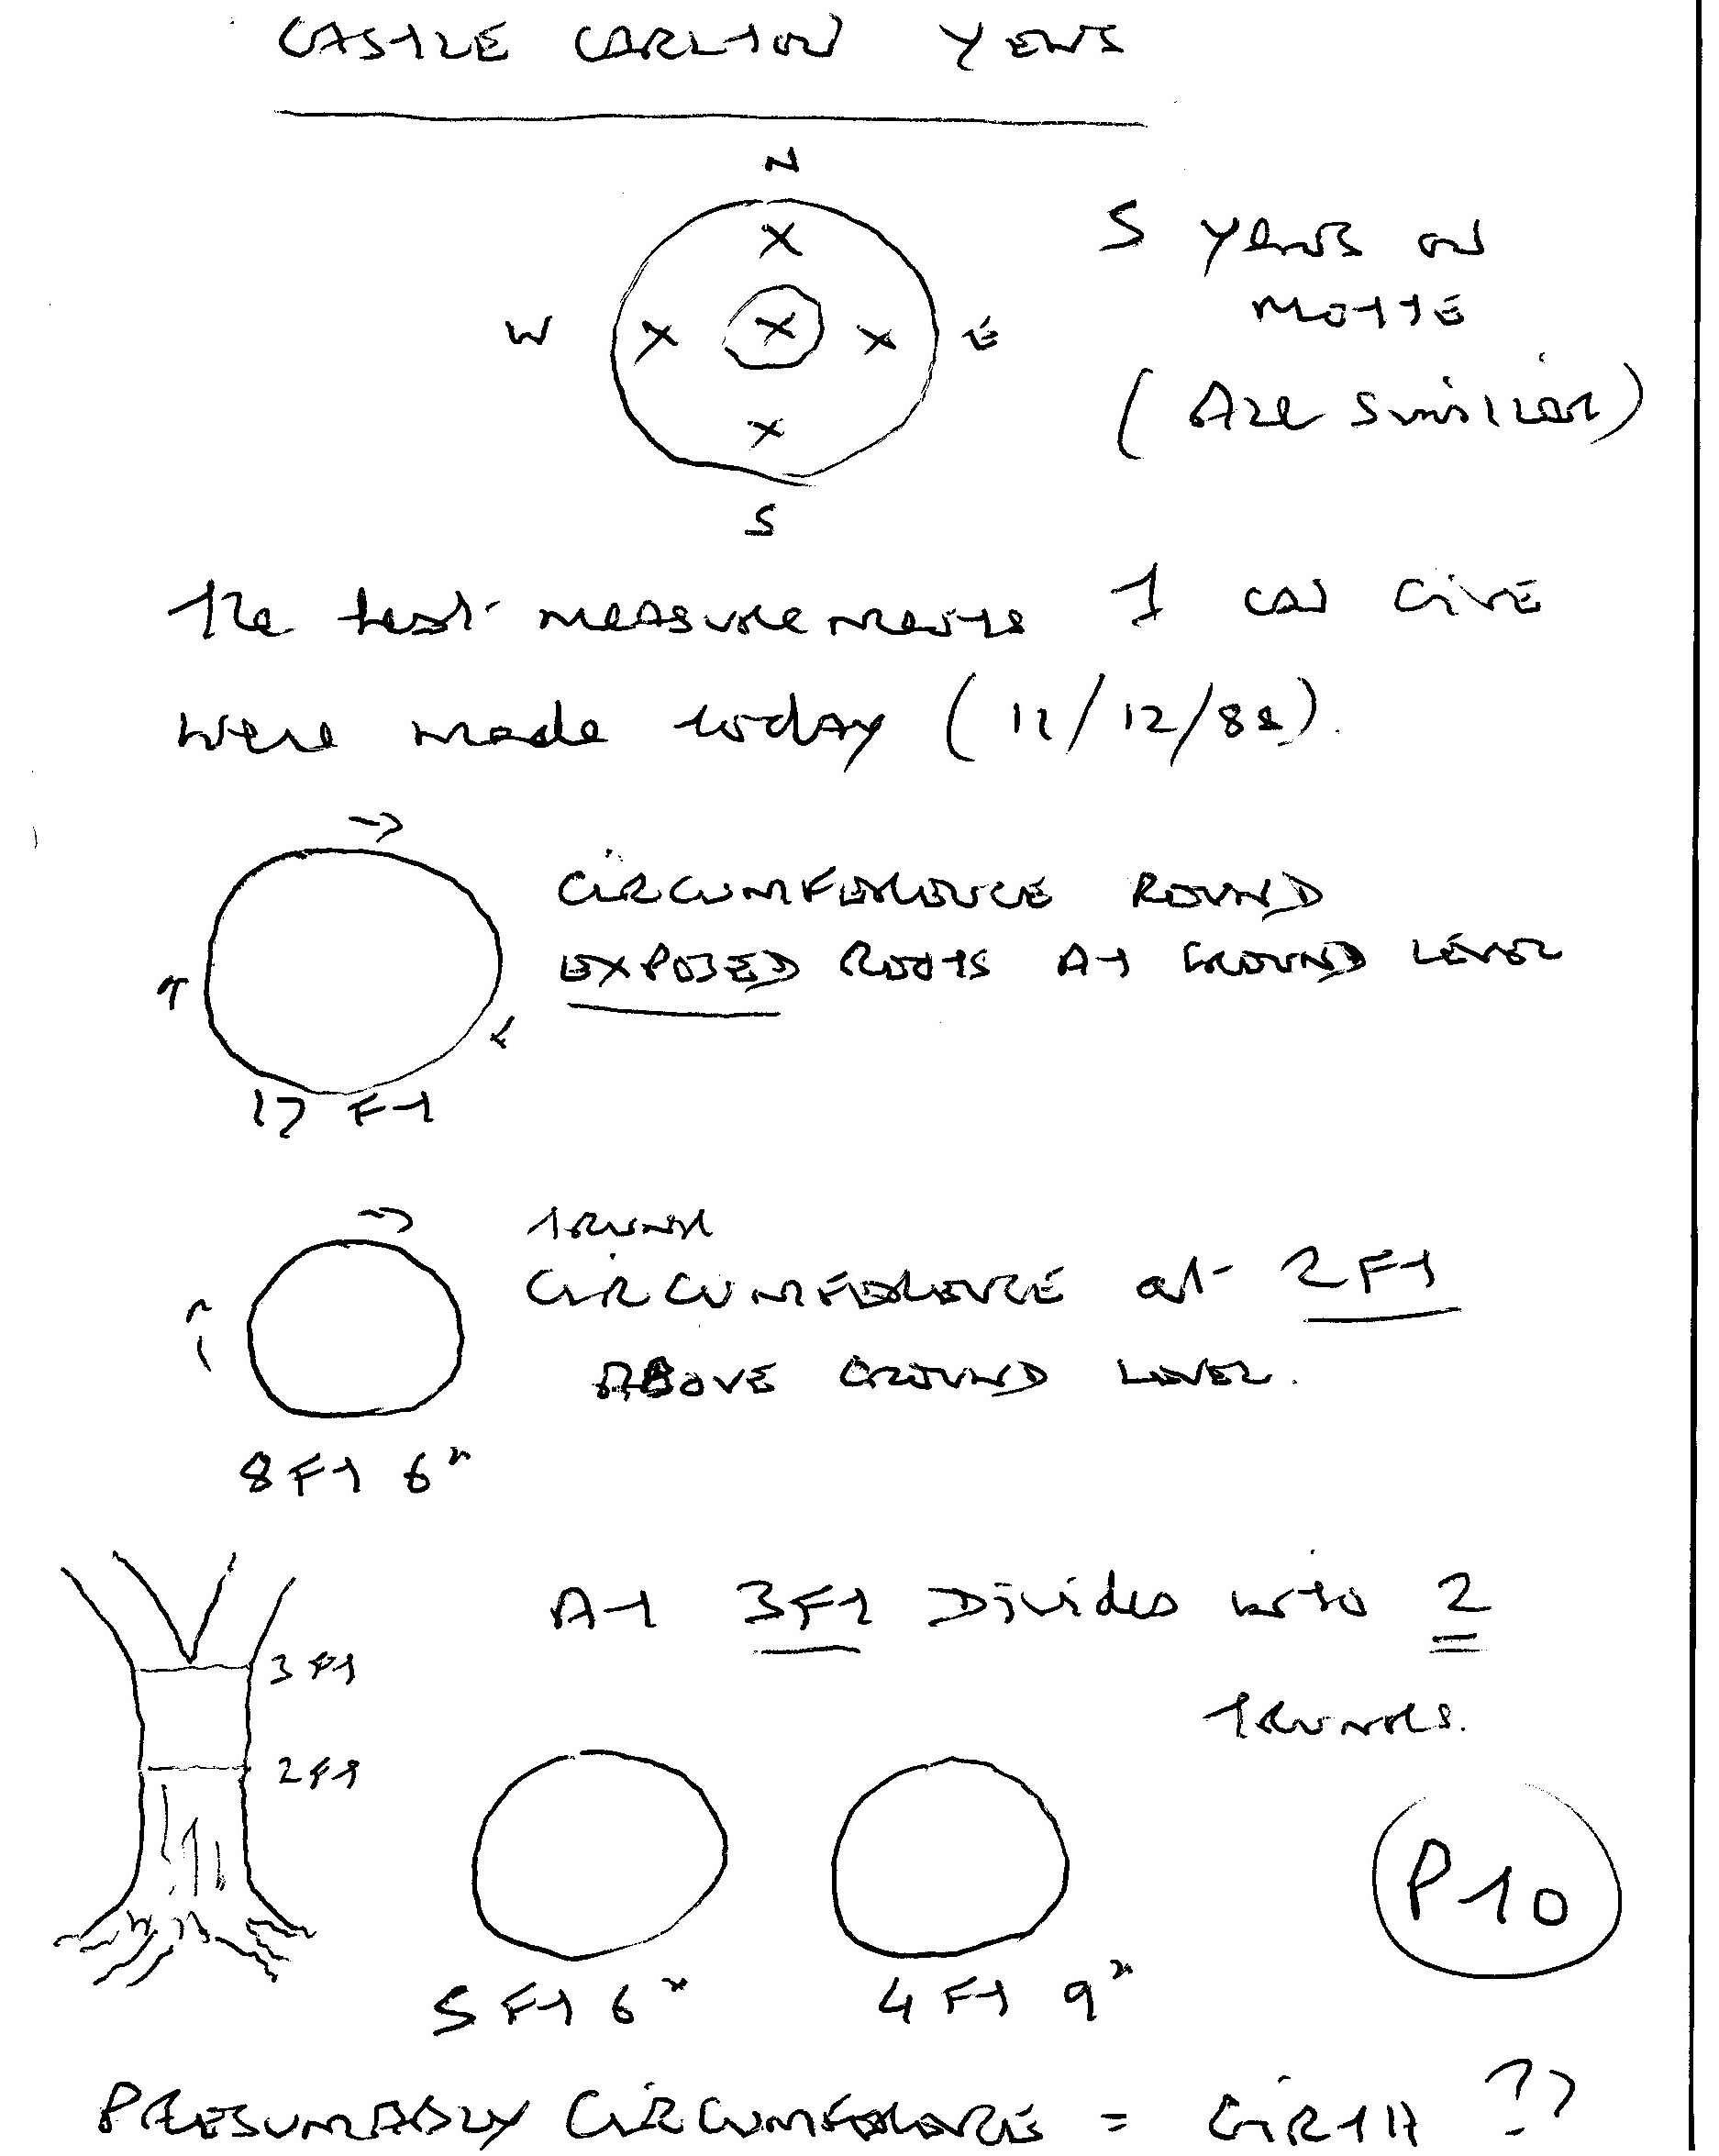 CASTLE CARLTON YEWS
N
5 YEWS ON
MOTTE
W X X X X X E
(ARE SIMILIAR)
S
The best measurements I can GIVE
were made today (11/12/88).
CIRCUMFERENCE ROUND
EXPOSED ROOTS AT GROUND LEVEL
17 FT
TRUNK
CIRCUMFERENCE at 2FT
ABOVE GROUND LEVEL.
8FT 6"
AT 3FT Divides into 2
TRUNKS.
3 FT
2 FT
P10
5 FT 6" 4 FT 9"
PRESUMABLY CIRCUMFERENCE = GIRTH ??